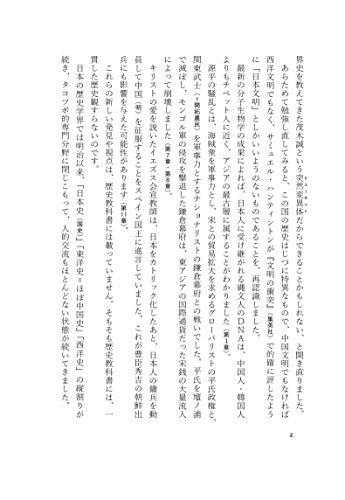 界史を教えてきた茂木誠という突然変異体だからできることかもしれない、と開き直りました。
あらためて勉強し直してみると、この国の歴史はじつに特異なもので、中国文明でもなければ
西洋文明でもなく、サミュエル・ハンティントンが『文明の衝突』（集英社）で的確に評したよう
に「日本文明」としかいいようのないものであることを、再認識しました。
最新の分子生物学の成果によれば、日本人に受け継がれる縄文人のDNAは、中国人・韓国人
よりもチベット人に近く、アジアの最古層に属することがわかりました（第1章）。
源平の騒乱とは、海賊衆を軍事力とし、宋との貿易拡大を求めるグローバリストの平氏政権と、
関東武士（＝開拓農民）を軍事力とするナショナリストの鎌倉幕府との戦いでした。平氏を壇ノ浦
で滅ぼし、モンゴル軍の侵攻を撃退した鎌倉幕府は、東アジアの国際通貨だった宋銭の大量流入
によって崩壊しました（第7章・第8章）。
キリストの愛を説いたイエズス会宣教師は、日本をカトリック化したあと、日本人の傭兵を動
員して中国（明）を征服することをスペイン国王に進言していました。これが豊臣秀吉の朝鮮出
兵にも影響を与えた可能性があります（第11章）。
これらの新しい発見や視点は、歴史教科書には載っていません。そもそも歴史教科書には、一
貫した歴史観すらないのです。
日本の歴史学界では明治以来、「日本史（国史）」「東洋史＝ほぼ中国史」「西洋史」の縦割りが
続き、タコツボ的専門分野に閉じこもって、人的交流もほとんどない状態が続いてきました。
2